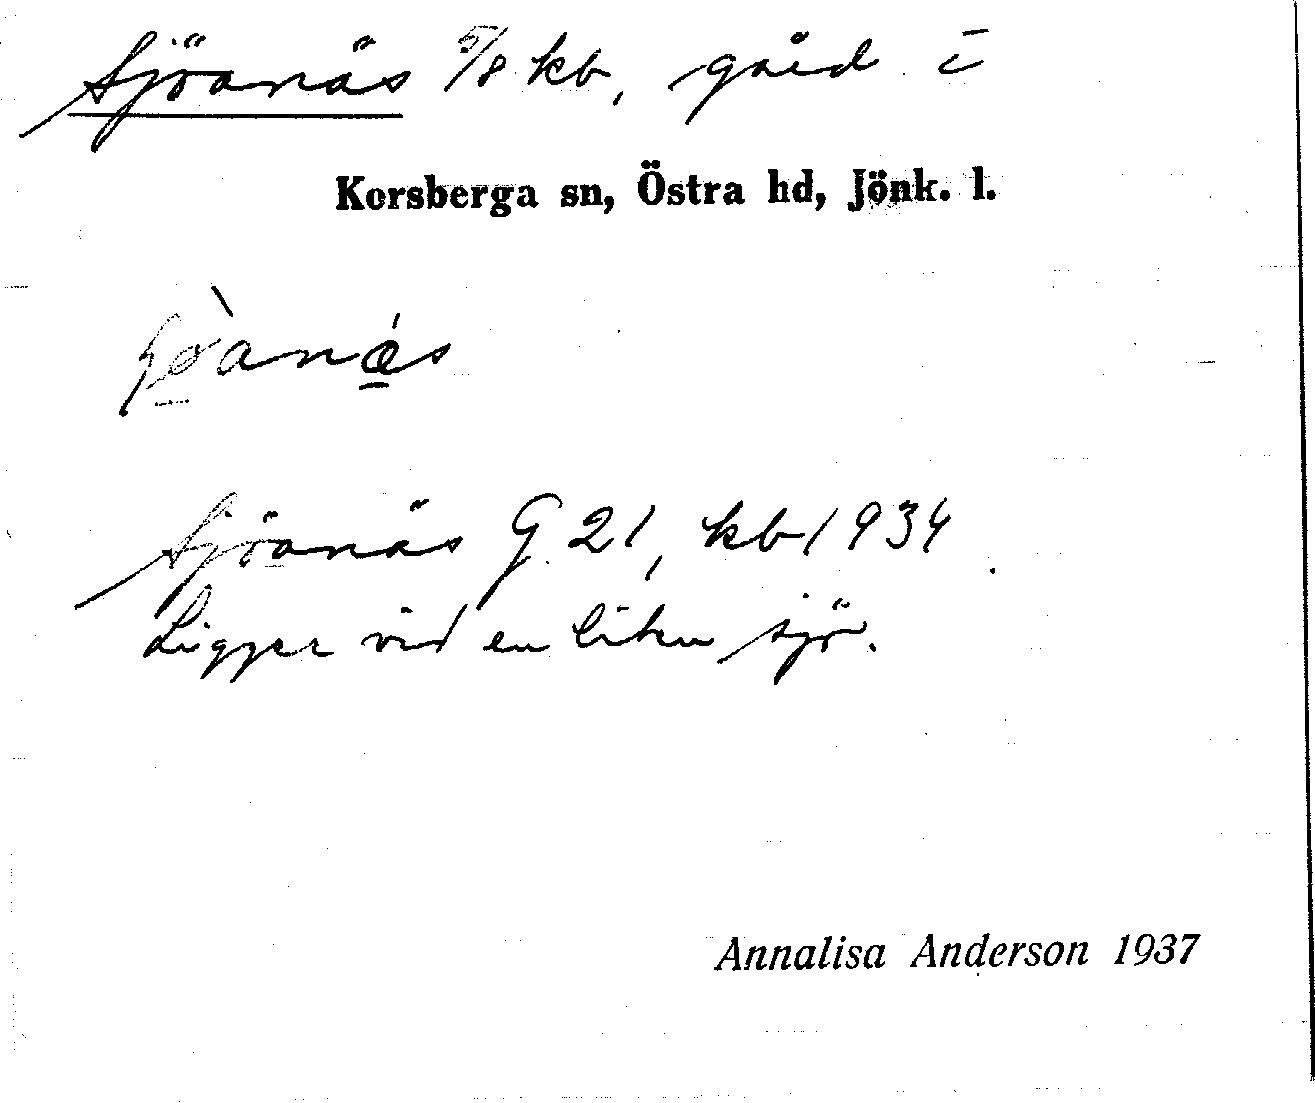 Sjöanäs 5/8 kb, gård i
Korsberga sn, Östra hd, Jönk. l.
Sjöanäs G 21, kb 1934
Ligger vid en liten sjö.
Annalisa Anderson 1937